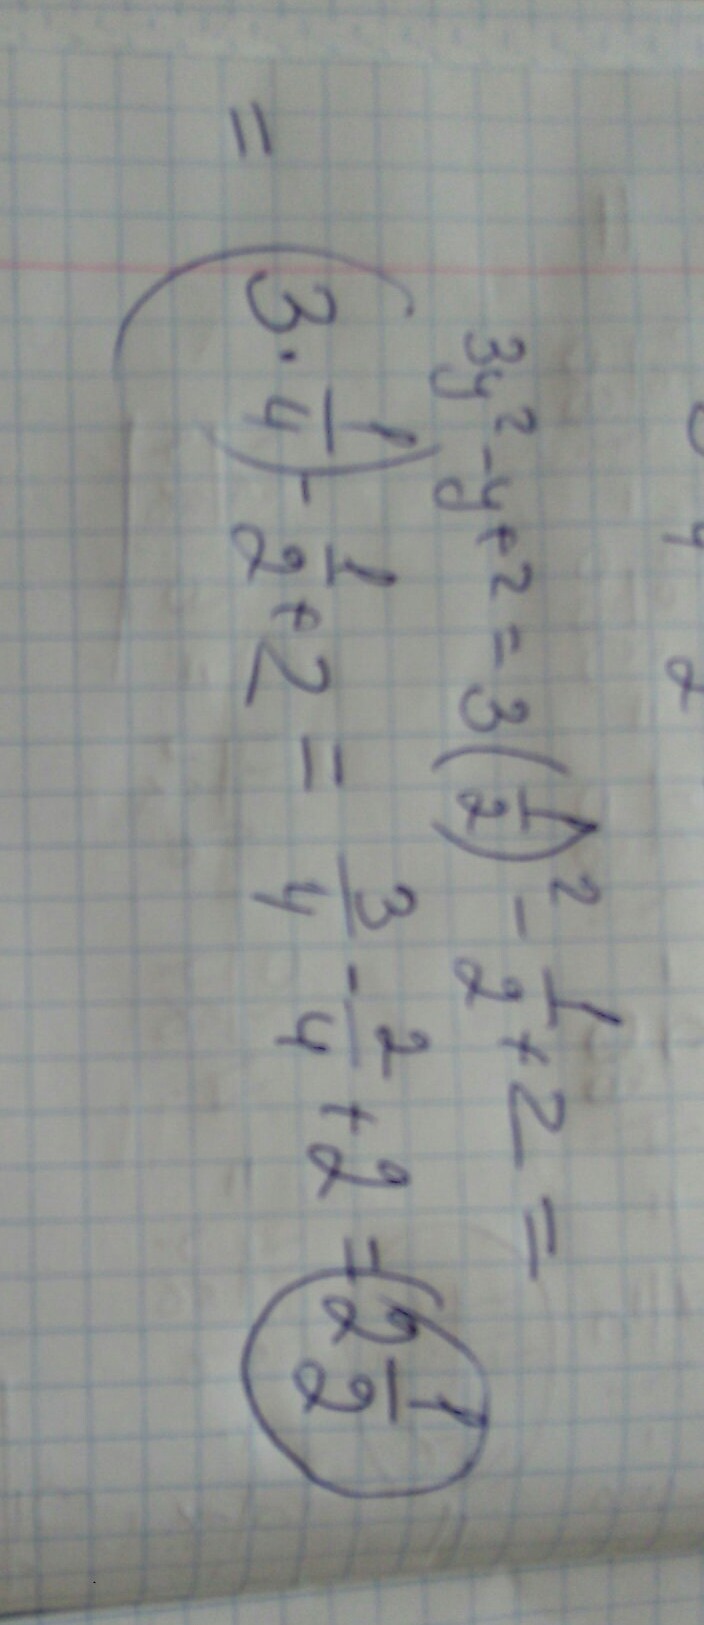 3y² - y + 2 = 3(1/2)² - 1/2 + 2 =
= (3 · 1/4) - 1/2 + 2 = 3/4 - 2/4 + 2 = 2 1/2